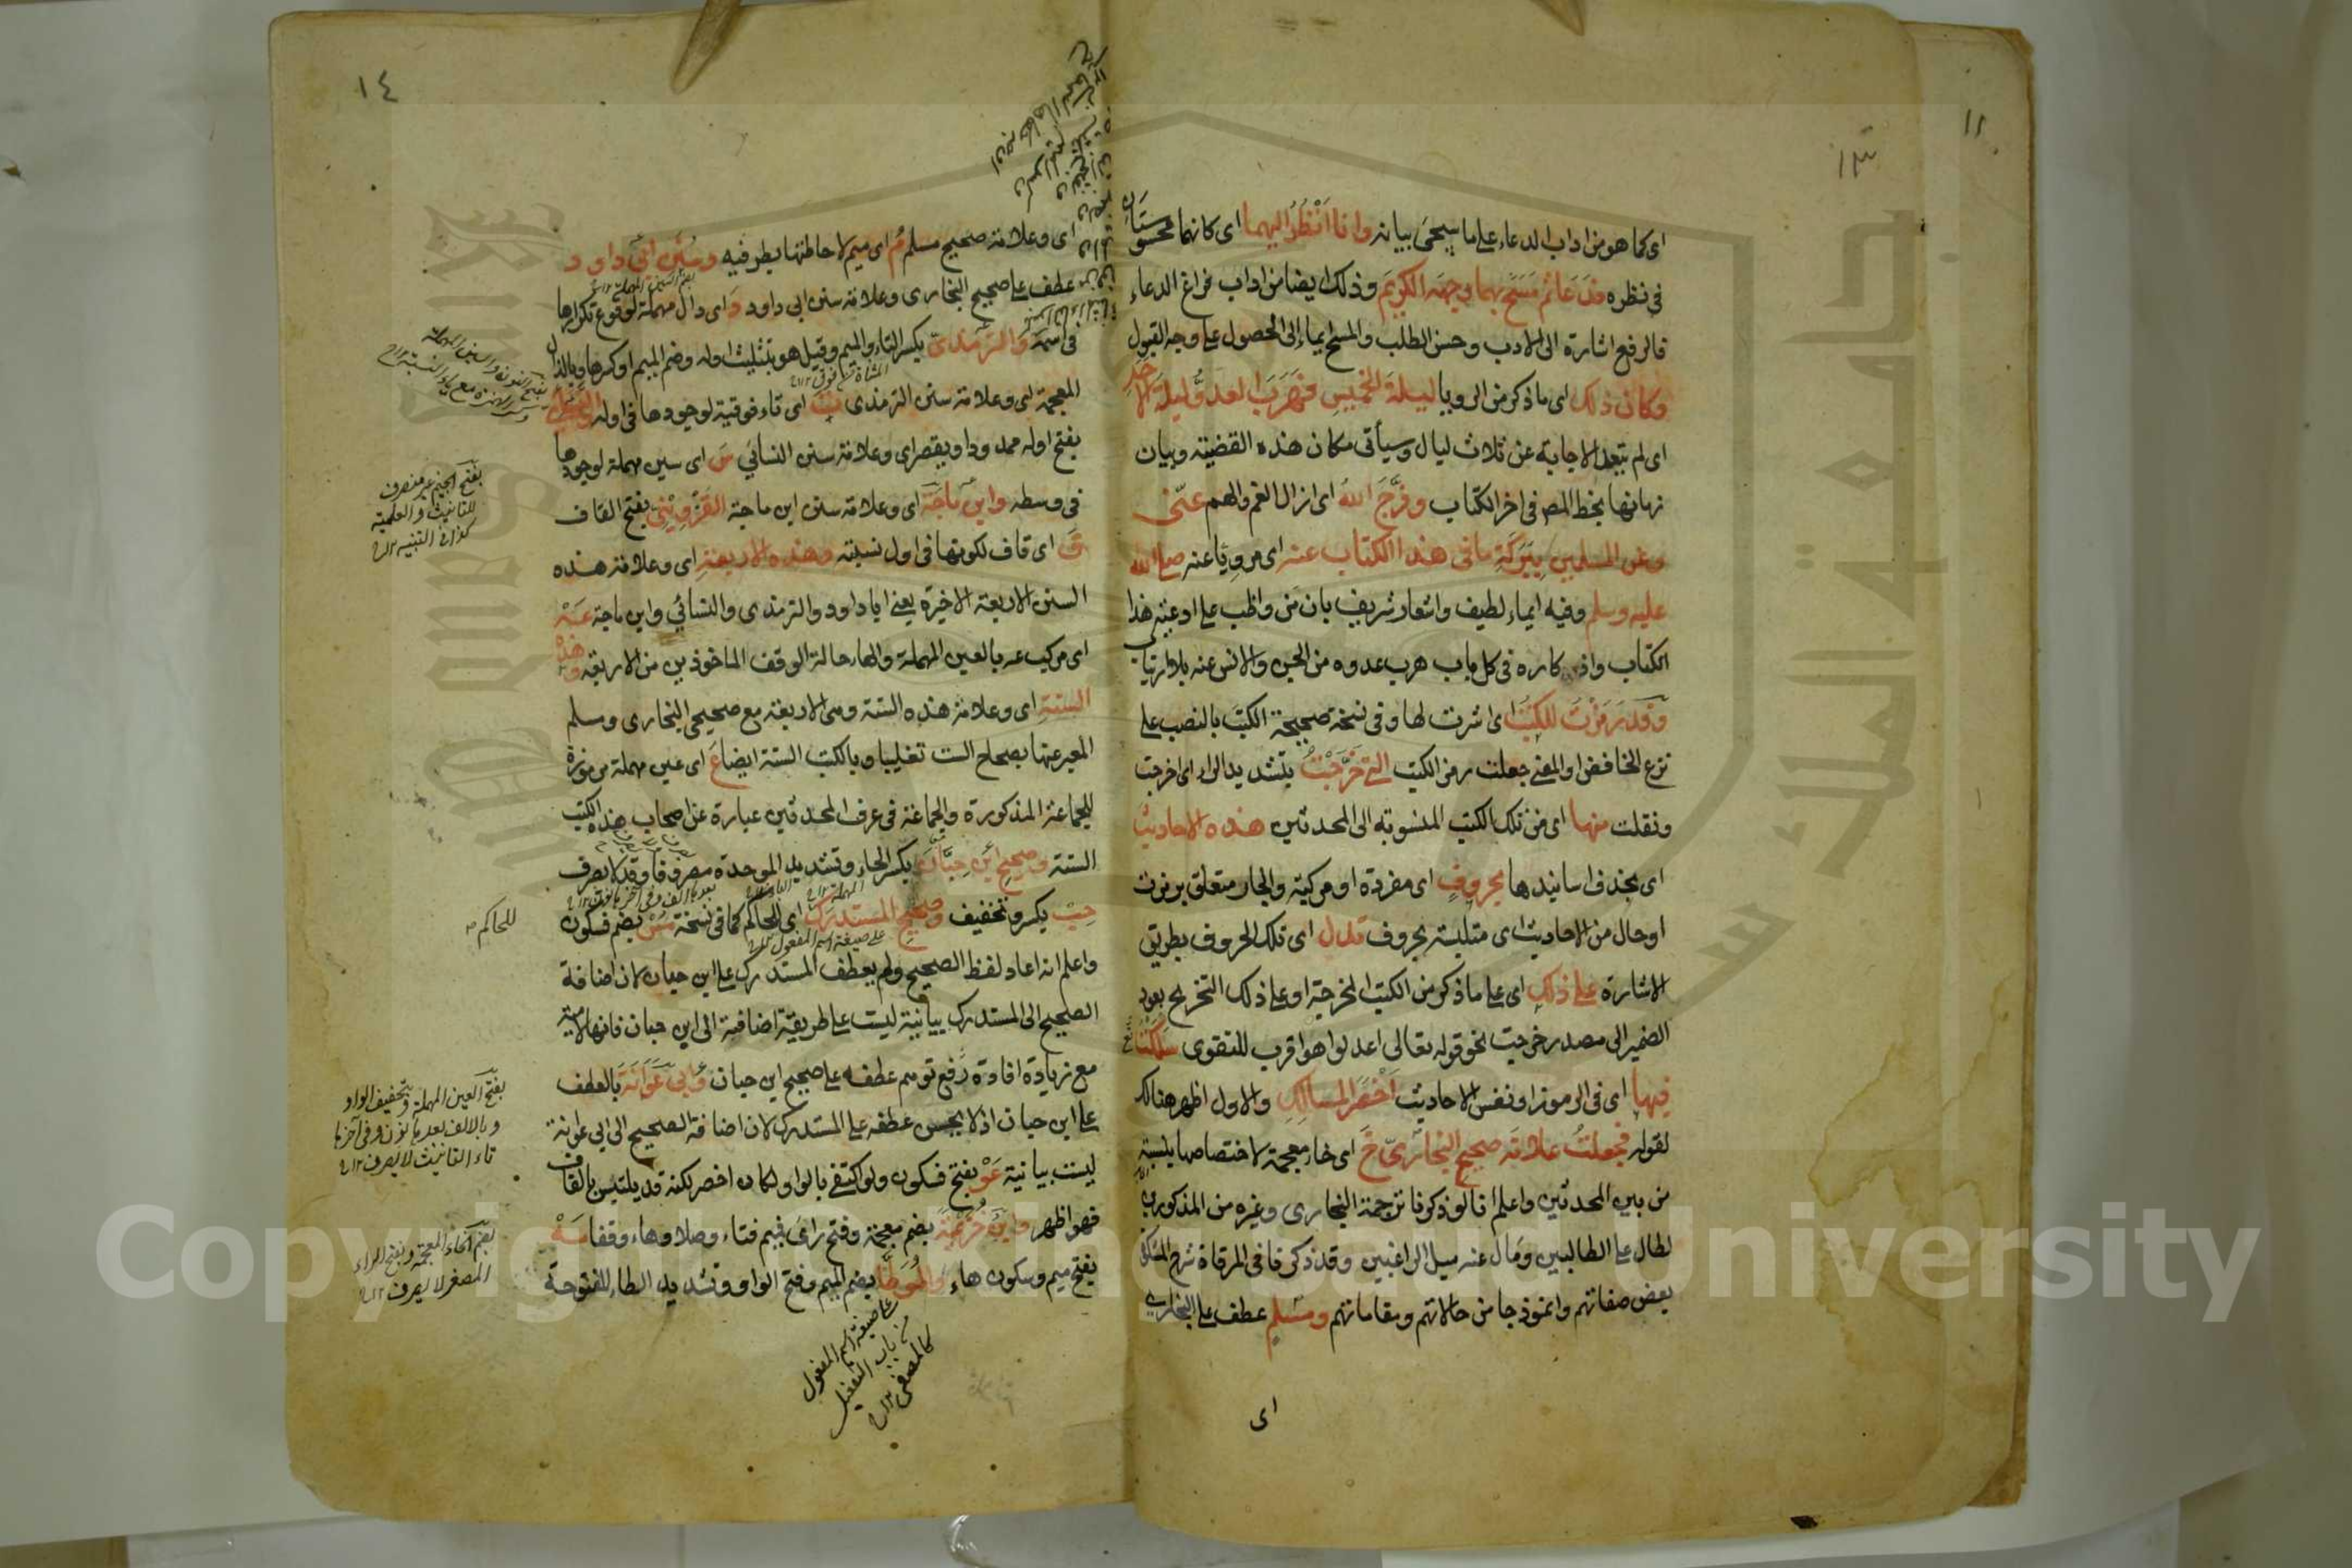 ١١
١٣
اى كما هو من اداب الدعاء على ما سيجئ بيانه وانا انظر اليهما اى كانهما محسوستان
فى نظره فدعا ثم مسح بهما وجهه الكريم وذلك ايضا من اداب فراغ الدعاء
فالرفع اشارة الى الادب وحسن الطلب والمسح ايماء الى الحصول على وجه القبول
وكان ذلك اى ما ذكر من الرويا ليلة الخميس فهرب العدو ليلة الاحد
اى لم تبعد الاجابة عن ثلاث ليال وسيأتى مكان هذه القضية وبيان
زمانها بخط المص فى اخر الكتاب وفرج الله اى ازال الغم والهم عنى
وعن المسلمين ببركة ما فى هذا الكتاب عنه اى مرويا عنه صلى الله
عليه وسلم وفيه ايماء لطيف واشعار شريف بان من واظب على ادعية هذا
الكتاب واذكاره فى كل باب هرب عدوه من الجن والانس عنه بلا ارتياب
وقد رمزت للكتب اى اشرت لها وفى نسخة صحيحة الكتب بالنصب على
نزع الخافض او المعنى جعلت رمز الكتب التى خرجت بتشديد الراء اى اخرجت
ونقلت منها اى من تلك الكتب المنسوبة الى المحدثين هذه الاحاديث
اى بحذف اسانيدها بحروف اى مفردة او مركبة والجار متعلق برمزت
او حال من الاحاديث اى متلبسة بحروف تدل اى تلك الحروف بطريق
الاشارة على ذلك اى على ما ذكر من الكتب المخرجة او على ذلك التخريج بعود
الضمير الى مصدر خرجت نحو قوله تعالى اعدلوا هو اقرب للتقوى سلكت
فيها اى فى الرموز او نفس الاحاديث اخصر المسالك والاول اظهر هنالك
لقوله فجعلت علامة صحيح البخارى خ اى خاء معجمة لاختصاصها بنسبته
من بين المحدثين واعلم انا لو ذكرنا ترجمة البخارى وغيره من المذكورين
لطال على الطالبين ومال عنه ميل الراغبين وقد ذكرنا فى المرقاة شرح المشكوة
بعض صفاتهم وانموذجا من حالاتهم ومقاماتهم ومسلم عطف على البخارى
اى
١٤
اى وعلامة صحيح مسلم م اى ميم لاحاطتها بطرفيه وسنن ابى داود
عطف على صحيح البخارى وعلامة سنن ابى داود د اى دال مهملة لوقوع تكرارها
فى اسمه والترمذى بكسر التاء والميم وقيل هو بتثليث اوله وضم الميم او كسرها وبالذال
المعجمة اى وعلامة سنن الترمذى ت اى تاء فوقية لوجودها فى اوله والنسائى
بفتح اوله ممدودا ويقصر اى وعلامة سنن النسائي س اى سين مهملة لوجودها
فى وسطه وابن ماجة اى وعلامة سنن ابن ماجة القزوينى بفتح القاف
ق اى قاف لكونها فى اول نسبته وهذه الاربعة اى وعلامة هذه
السنن الاربعة الاخيرة يعنى ابا داود والترمذى والنسائي وابن ماجة عه
اى مركب عه بالعين المهملة والهاء حالة الوقف الماخوذين من الاربعة وهذه
الستة اى وعلامة هذه الستة وهى الاربعة مع صحيحى البخارى ومسلم
المعبر عنها بصحاح الست تغليبا وبالكتب الستة ايضا ع اى عين مهملة مرموزة
للجماعة المذكورة والجماعة فى عرف المحدثين عبارة عن اصحاب هذه الكتب
الستة وصحيح ابن حبان بكسر الحاء وتشديد الموحدة مصروفا وقد لا يصرف
حب بكسر وتخفيف وصحيح المستدرك اى للحاكم كما فى نسخة مس بضم فسكون
واعلم انه اعاد لفظ الصحيح ولم يعطف المستدرك على ابن حبان لان اضافة
الصحيح الى المستدرك بيانية ليست على طريقة اضافته الى ابن حبان فانها لامية
مع زيادة افادة رفع توهم عطفه على صحيح ابن حبان وابى عوانة بالعطف
على ابن حبان اذ لا يحسن عطفه على المستدرك لان اضافة الصحيح الى ابى عوانة
ليست بيانية عو بفتح فسكون ولو اكتفى بالواو لكان اخصر لكنه قد يلتبس بالقاف
فهو اظهر وابن خزيمة بضم معجمة وفتح زاى فميم فتاء وصلا وهاء وقفا مه
بفتح ميم وسكون هاء والموطأ بضم الميم وفتح الواو وتشديد الطاء المفتوحة
بضم السين المهملة
بفتح النون والسين المهملة
بفتح الجيم غير منصرف
للتانيث والعلمية
كذا فى التنبيه
للحاكم
على صيغة اسم المفعول
بفتح العين المهملة وتخفيف الواو
وبالالف بعدها نون وفى آخرها
تاء التانيث لا يصرف
بضم الخاء المعجمة وبفتح الزاء
المصغر لا يصرف
على صيغة اسم المفعول
من باب التفعيل
كالمصفى
Copyright © King Saud University
جامعة الملك سعود